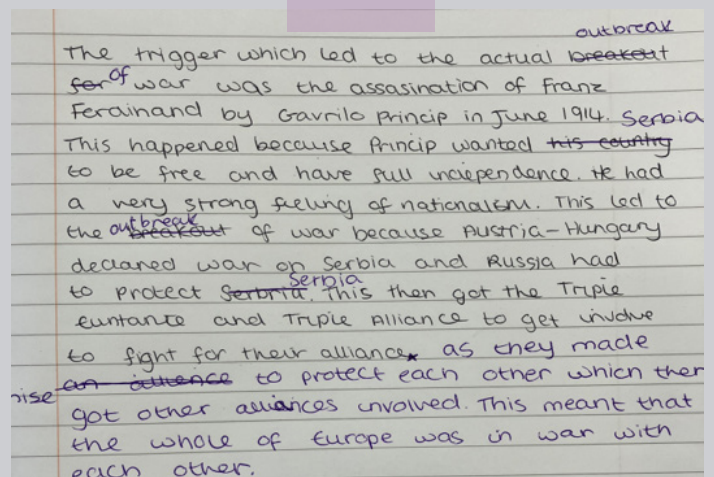 outbreak
The trigger which led to the actual breakout
for of war was the assasination of Franz
Ferdinand by Gavrilo Princip in June 1914. Serbia
This happened because Princip wanted his country
to be free and have full independence. He had
a very strong feeling of nationalism. This led to
the outbreak breakout of war because Austria-Hungary
declared war on Serbia and Russia had
Serbia
to protect Serbria. This then got the Triple
Euntante and Triple Alliance to get involve
to fight for their alliance as they made
an allience to protect each other which then
got other alliances involved. This meant that
the whole of Europe was in war with
each other.